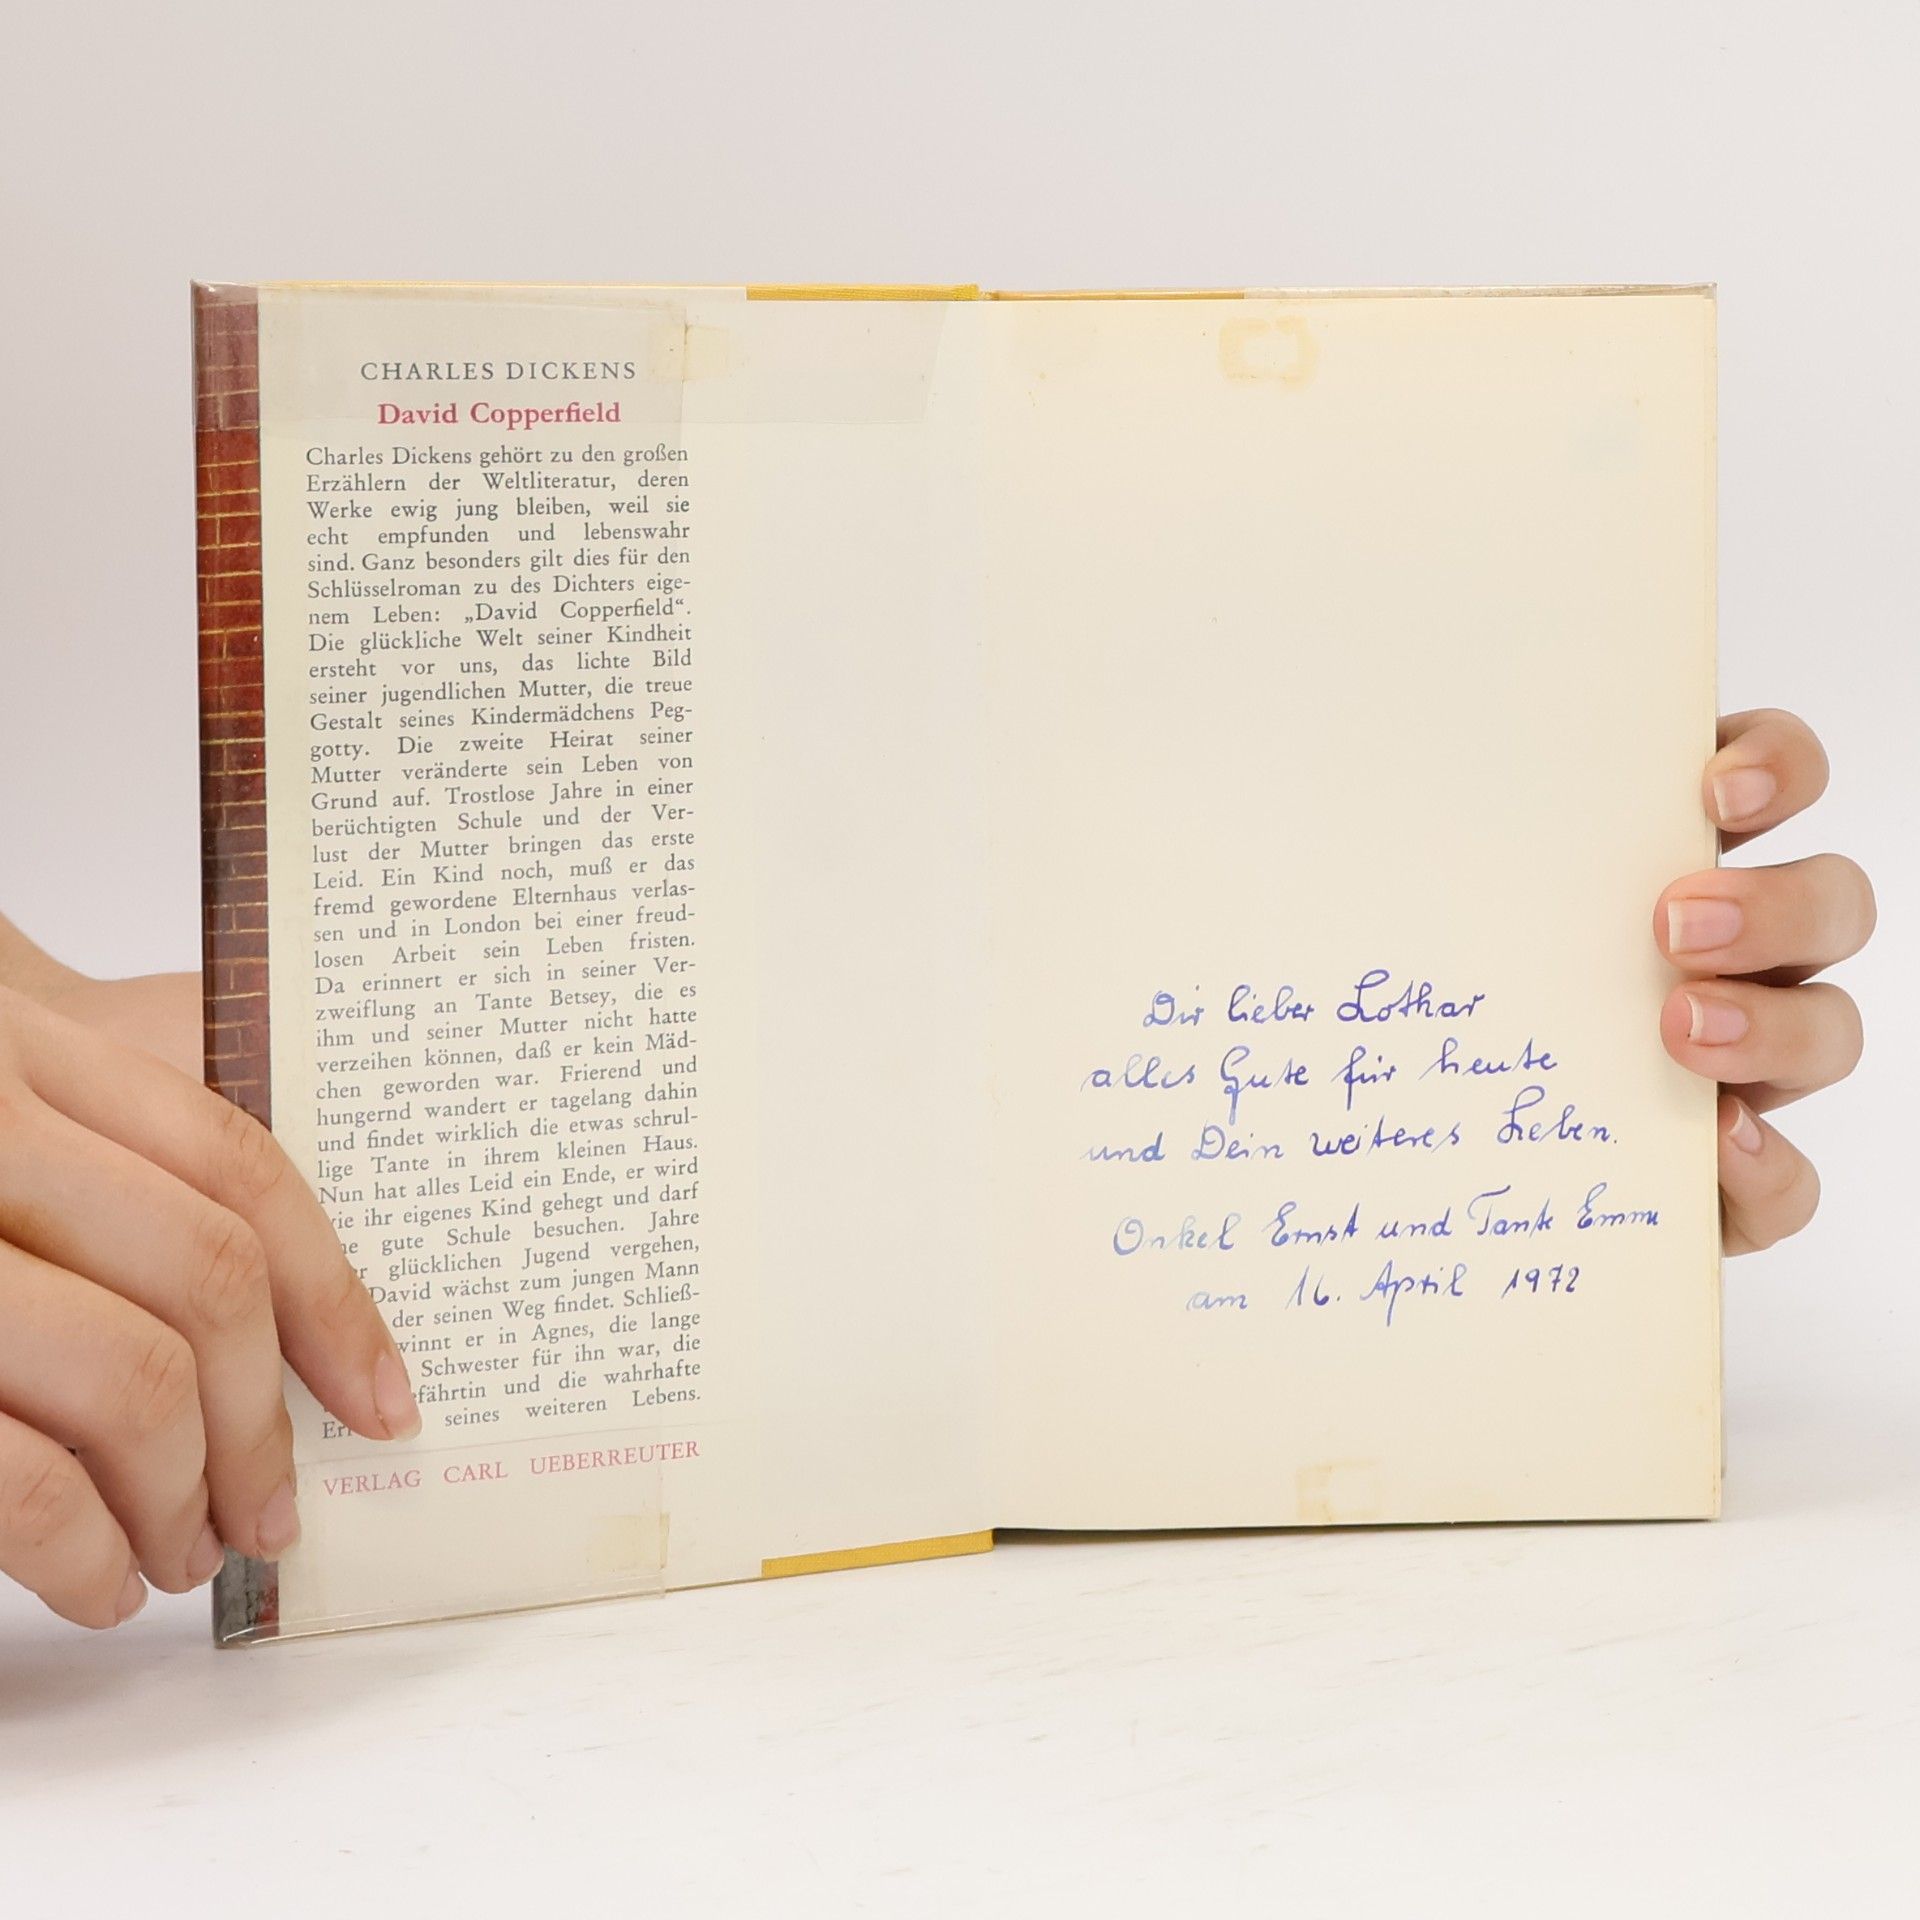 CHARLES DICKENS
David Copperfield
Charles Dickens gehört zu den großen
Erzählern der Weltliteratur, deren
Werke ewig jung bleiben, weil sie
echt empfunden und lebenswahr
sind. Ganz besonders gilt dies für den
Schlüsselroman zu des Dichters eige-
nem Leben: „David Copperfield“.
Die glückliche Welt seiner Kindheit
ersteht vor uns, das lichte Bild
seiner jugendlichen Mutter, die treue
Gestalt seines Kindermädchens Peg-
gotty. Die zweite Heirat seiner
Mutter veränderte sein Leben von
Grund auf. Trostlose Jahre in einer
berüchtigten Schule und der Ver-
lust der Mutter bringen das erste
Leid. Ein Kind noch, muß er das
fremd gewordene Elternhaus verlas-
sen und in London bei einer freud-
losen Arbeit sein Leben fristen.
Da erinnert er sich in seiner Ver-
zweiflung an Tante Betsey, die es
ihm und seiner Mutter nicht hatte
verzeihen können, daß er kein Mäd-
chen geworden war. Frierend und
hungernd wandert er tagelang dahin
und findet wirklich die etwas schrul-
lige Tante in ihrem kleinen Haus.
Nun hat alles Leid ein Ende, er wird
ihr eigenes Kind gehegt und darf
gute Schule besuchen. Jahre
glücklichen Jugend vergehen,
David wächst zum jungen Mann
der seinen Weg findet. Schließ-
er in Agnes, die lange
Schwester für ihn war, die
und die wahrhafte
seines weiteren Lebens.
VERLAG CARL UEBERREUTER
Dir lieber Lothar
alles Gute für heute
und Dein weiteres Leben.
Onkel Ernst und Tante Emma
am 16. April 1972